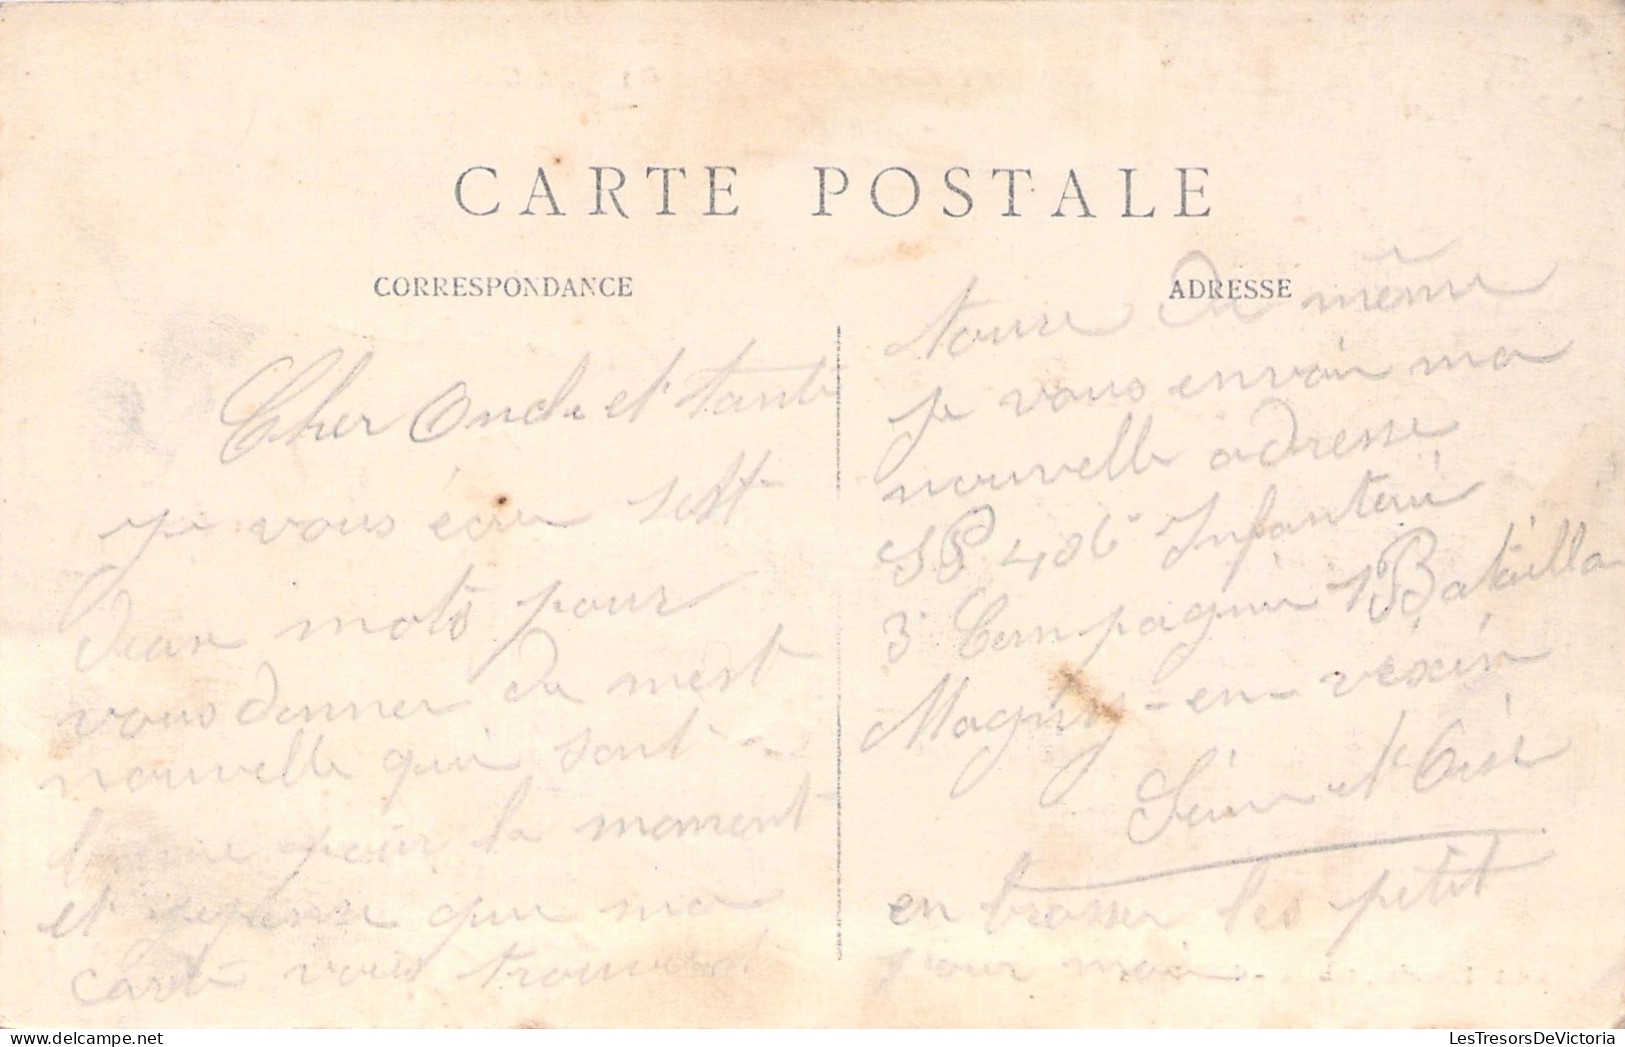 CARTE POSTALE
CORRESPONDANCE
Cher Oncle et tante
je vous écri sett
deux mots pour
vous donner de mest
nouvelle qui sont
bonne pour le moment
et je pense que ma
carte vous trouvera
ADRESSE
tous de même
je vous envoir ma
nouvelle adresse
SP 406e Infanterie
3e Compagnie 1 Bataillon
Magny-en-vexin
Seine et Oise
en brasser les petit
pour moi
LesTresorsDeVictoria